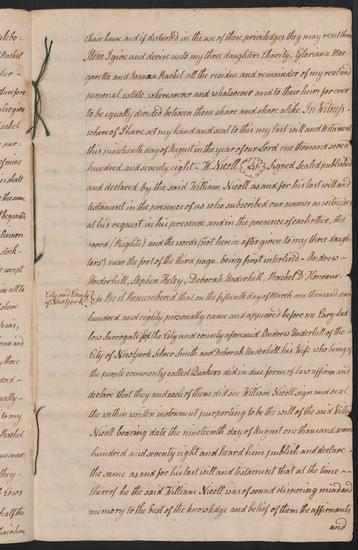 their house and if disturb'd in the use of these priviledges they may rent them
Item I give and devise unto my three daughters Charity, Gloriana Mar-
garetta and Joanna Rachel all the residue and remainder of my real and
personal estate wheresoever and whatsoever and to their heirs for ever
to be equally divided between them share and share alike. In Witness
whereof I have set my hand and seal to this my last will and testament
this nineteenth day of August in the year of our Lord one thousand seven
hundred and seventy eight - W. Nicoll LS Signed sealed published
and declared by the said William Nicoll as and for his last will and
testament in the presence of us who subscribed our names as witnesses
at his request in his presence and in the presence of each other, the
word (Rights) and the words (not herein after given to my three daugh-
ters) near the foot of the third page being first interlined - Andrew
Underhill, Stephen Deborah Underhill, Rachel D
City and County of New York ss Be it Remembered that on the fifteenth day of March one thousand seven
hundred and eighty personally came and appeared before me Cary Lud
low Surrogate for the City and county aforesaid Andrew Underhill of the
City of New York Silver Smith and Deborah Underhill his Wife who being of
the people commonly called Quakers did in due form of law affirm and
declare that they and each of them did see William Nicoll sign and seal
the within written instrument purporting to be the will of the said William
Nicoll bearing date the nineteenth day of August one thousand seven
hundred and seventy eight and heard him publish and declare
the same as and for his last will and testament that at the time
thereof he the said William Nicoll was of sound disposing mind and
memory to the best of the knowledge and belief of them the affirmants
and